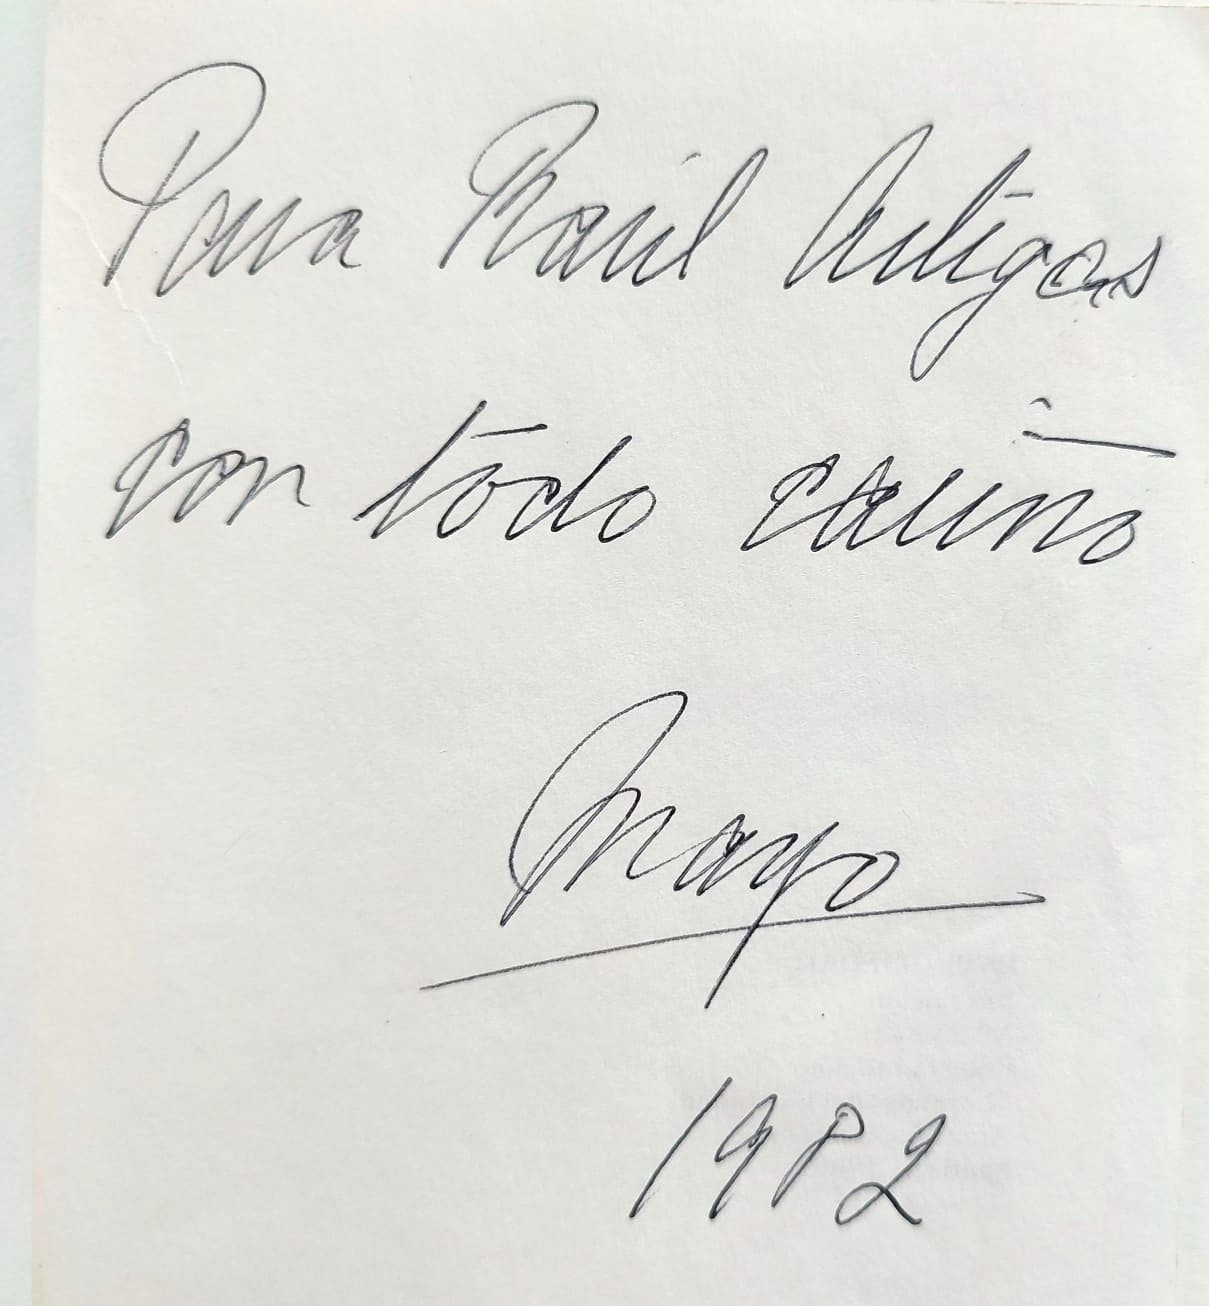 Para Raúl Artigas
con todo cariño
Mayo
1982